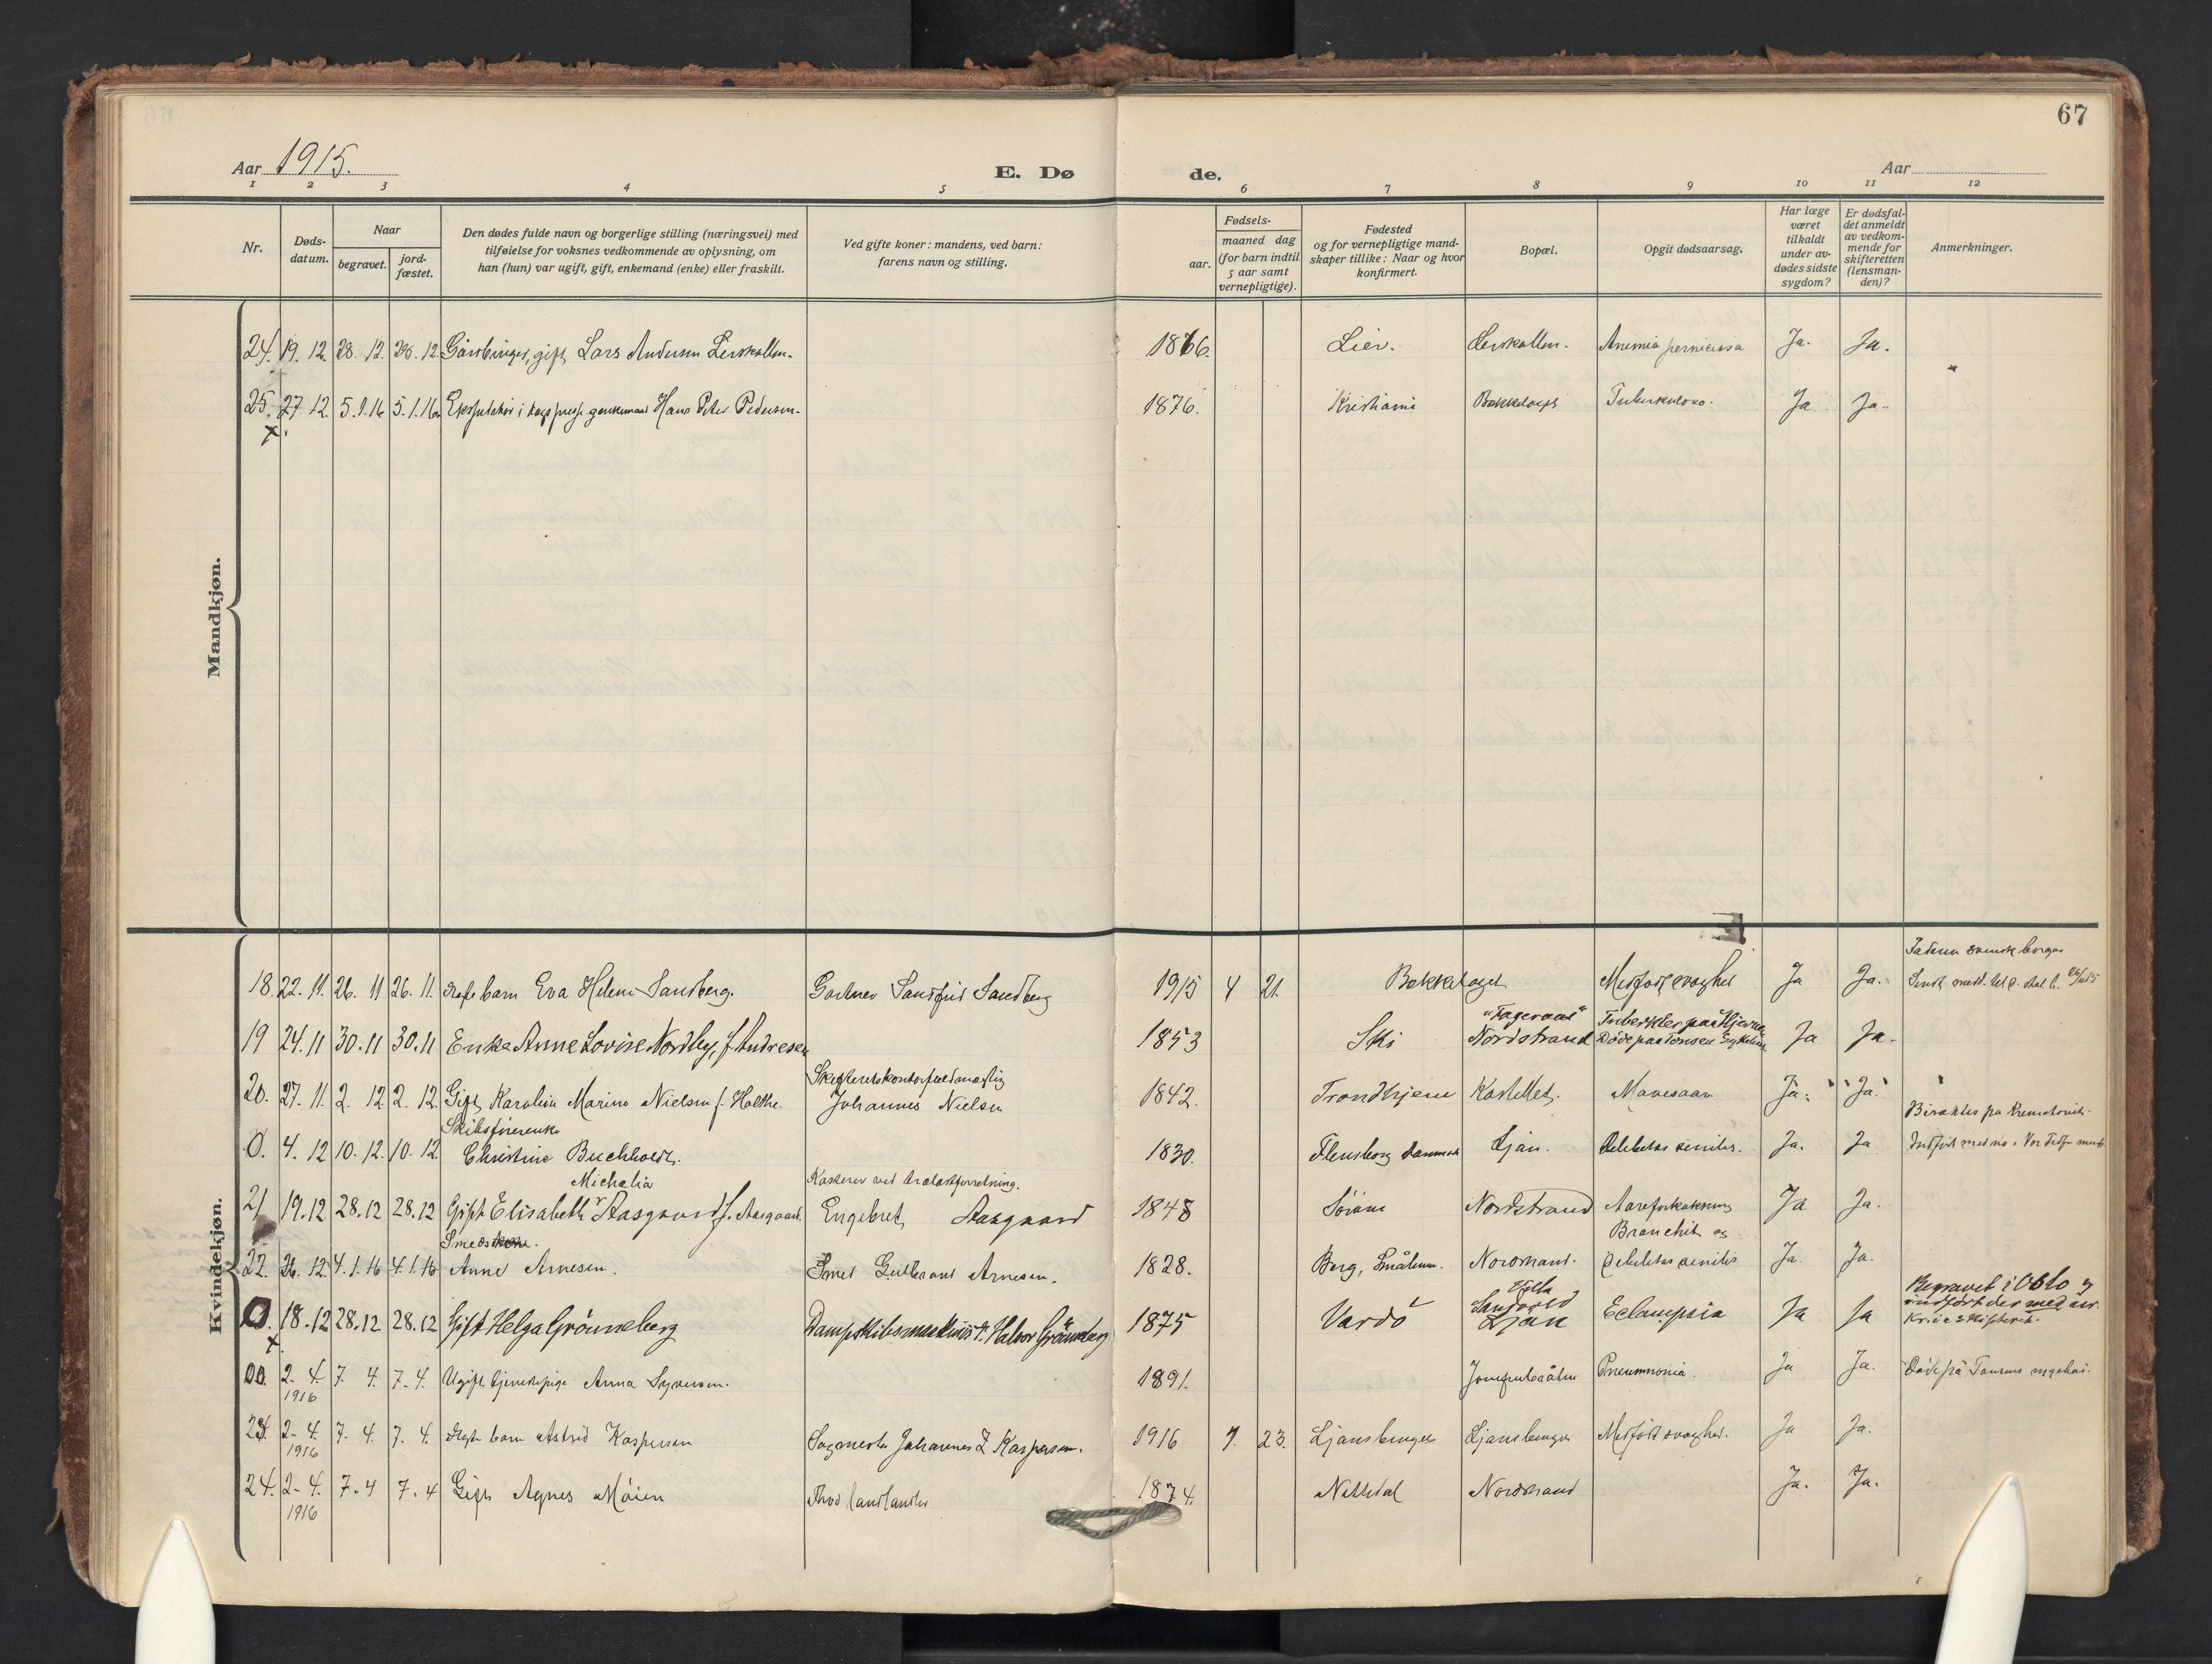 67
Aar 1915.
E. Dø de.
Aar
1 2 3 4 5 6 7 8 9 10 11 12
Nr.
Døds-
datum.
Naar
begravet.
jord-
fæstet.
Den dødes fulde navn og borgerlige stilling (næringsvei) med
tilføielse for voksnes vedkommende av oplysning, om
han (hun) var ugift, gift, enkemand (enke) eller fraskilt.
Ved gifte koner: mandens, ved barn:
farens navn og stilling.
Fødsels-
aar.
maaned dag
(for barn indtil
5 aar samt
vernepligtige).
Fødested
og for vernepligtige mand-
skaper tillike: Naar og hvor
konfirmert.
Bopæl.
Opgit dødsaarsag.
Har læge
været
tilkaldt
under av-
dødes sidste
sygdom?
Er dødsfal-
det anmeldt
av vedkom-
mende for
skifteretten
(lensman-
den)?
Anmerkninger.
Mandkjøn.
24. 19. 12. 28. 12. 28. 12. gift Lars Andersen Lerskallen. 1866. Lier. Lerskallen. Anemia perniciosa Ja. Ja.
25. 27. 12. 5.1.16 5.1.16 Hans Peter Pedersen. 1876. Kristiania Bækkelaget Tuberkulose. Ja Ja.
Kvindekjøn.
Faderen svensk borger
18. 22. 11. 26. 11 26. 11. barn Eva Helene Sandberg. Gartner Sandfrid Sandberg 1915 4 21. Bækkelaget Medfødt svaghet Ja Ja.
"Fagerand"
19 24.11 30.11 30.11 Enke Anne Lovise Nordby, f. Andresen 1853 Ski Nordstrand Tuberkler paa Hjernen Ja Ja.
Døde paa Tønsen Sykehus
20. 27. 11. 2. 12. 2. 12. Gift Karolin Marine Nielsen f. Holthe. Johannes Nielsen 1842. Trondhjem Kastellet. Mavesaar Ja. Ja.
Skibsførerenke
0. 4. 12 10. 12. 10. 12. Christine Buchholdt. 1830. Flensborg Danmark Ljan. Debilitas senilis. Ja. Ja
Michalia
21 19.12 28.12 28.12 Gift Elisabeth Aasgaard f. Aasgaard. Engebret Aasgaard 1848 Sørum Nordstrand Aareforkalkning Ja Ja.
Smeds
Bronchit og
22. 26. 12. 4.1.16 4.1.16 Anne Arnesen. Smed Gulbrand Arnesen. 1828. Borg, Smålenene. Nordstrand. Debilitas senilis Ja. Ja.
Begravet i Oslo og
0. 18.12 28.12 28.12 Gift Helga Grönneberg Dampskibsmaskinist Halvor Grönneberg 1875 Vardö Ljan Eclampsia Ja Ja
indført der med nr.
Kr.ia Skifteret.
00. 2. 4. 7. 4. 7. 4. Ugift tjenestepige Anna Syversen. 1891. Pneumonia. Ja Ja. Døde på
1916
23. 2. 4. 7. 4. 7. 4. barn Astrid Kaspersen Johannes Z Kaspersen. 1916 7. 23. Ljansbruget Ljansbruget Medfødt svaghet. Ja Ja.
1916
24. 2. 4. 7. 4 7. 4 Gift Agnes Moien 1874. Nittedal Nordstrand Ja. Ja.
1916